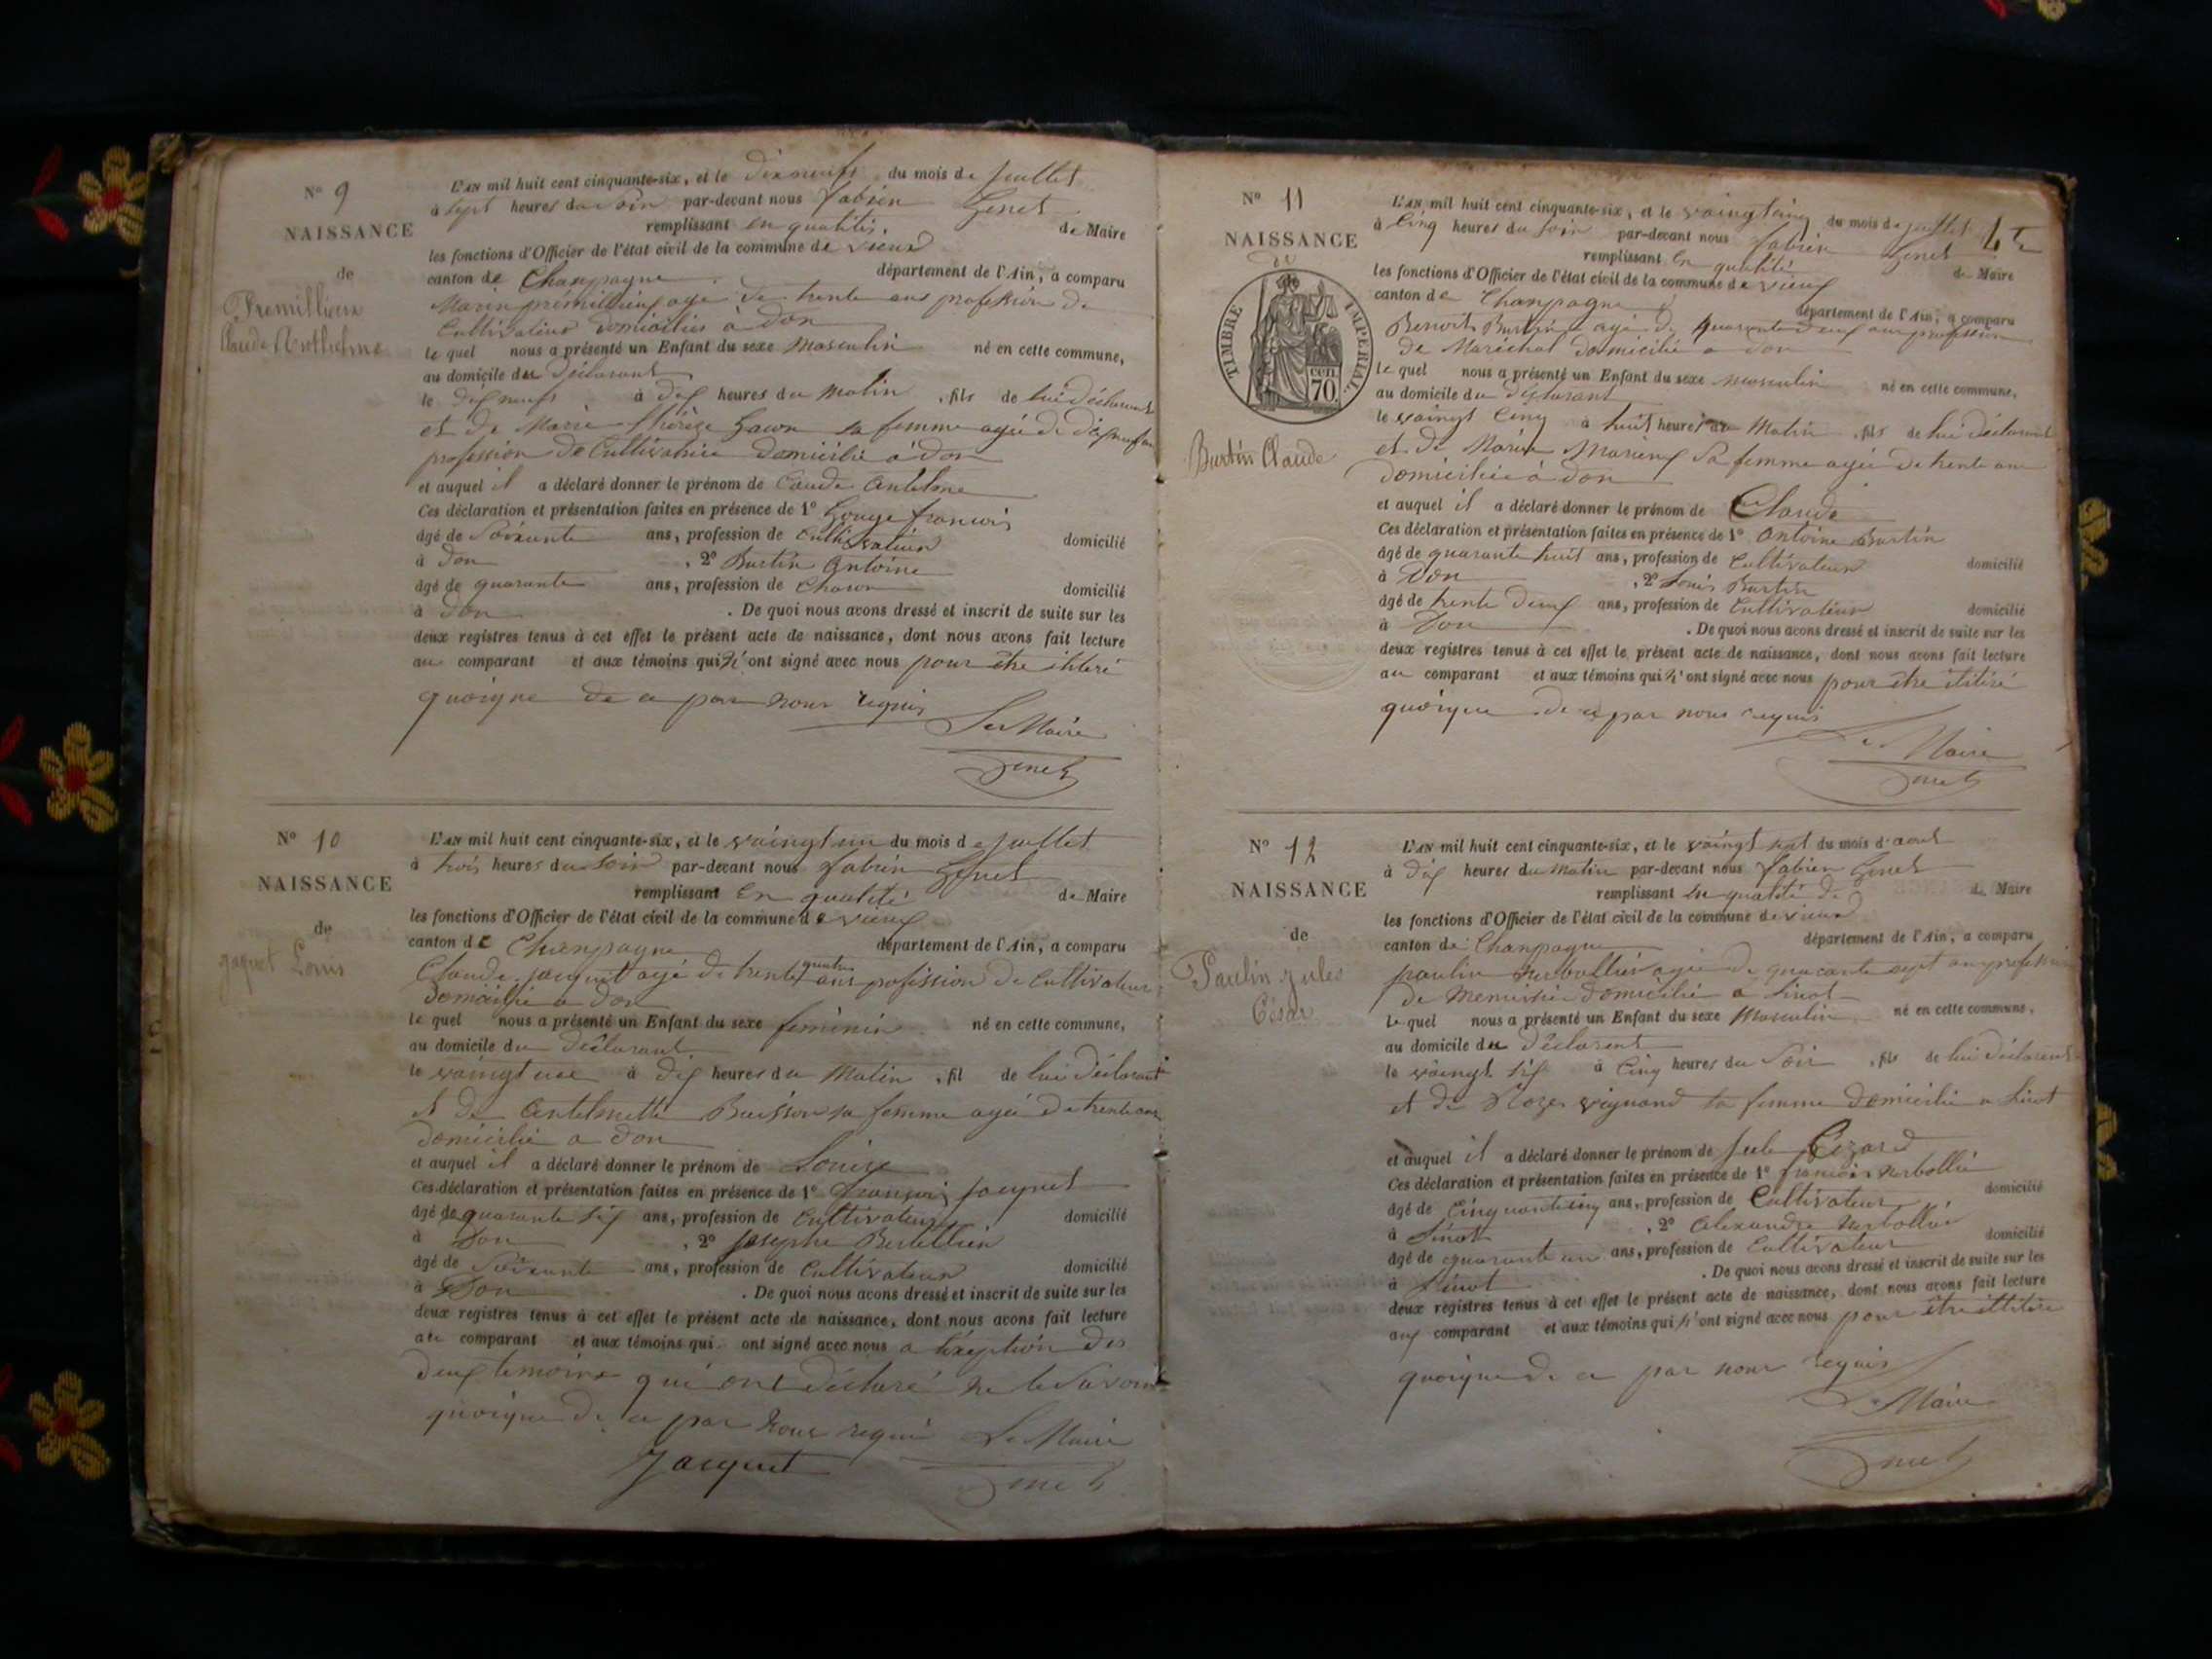 Nº 9
NAISSANCE
de
Premillieu
Claude Anthelme
L'AN mil huit cent cinquante-six, et le dixneufs du mois de Juillet
à sept heures du soir par-devant nous fabien Genet
remplissant en qualités de Maire
les fonctions d'Officier de l'état civil de la commune de vieux
canton de Champagne département de l'Ain, a comparu
Marin premillieux agé de trente ans profession de
Cultivateur domicilies à don
le quel nous a présenté un Enfant du sexe Masculin né en cette commune,
au domicile du déclarant
le dixneufs à dix heures du matin, fils de lui déclarant
et de Marie thérèze sa femme agée de
profession de Cultivatrice domicilié a don
et auquel il a déclaré donner le prénom de Claude antelme
Ces déclaration et présentation faites en présence de 1º Gouge francois
âgé de Soixante ans, profession de Cultivateur domicilié
à Don, 2º Burtin Antoine
âgé de quarante ans, profession de Charon domicilié
à Don. De quoi nous avons dressé et inscrit de suite sur les
deux registres tenus à cet effet le présent acte de naissance, dont nous avons fait lecture
au comparant et aux témoins qui n'ont signé avec nous pour être ilitéré
quoique de ce par nous requis
Le Maire
Genet
Nº 10
NAISSANCE
de
jaquet Louis
L'AN mil huit cent cinquante-six, et le vaingt un du mois de Juillet
à trois heures du soir par-devant nous fabien Genet
remplissant en qualité de Maire
les fonctions d'Officier de l'état civil de la commune de vieux
canton de Champagne département de l'Ain, a comparu
Claude jacquet agé de trente quatre ans profession de Cultivateur
domicilié a don
le quel nous a présenté un Enfant du sexe feminin né en cette commune,
au domicile du déclarant
le vaingt une à dix heures du Matin, fil de lui déclarant
et de Antelmette Buisson sa femme agée de trente ans
domicilié a don
et auquel il a déclaré donner le prénom de Louise
Ces déclaration et présentation faites en présence de 1º françois jacquet
âgé de quarante six ans, profession de Cultivateur domicilié
à Don, 2º josephe Bertellien
âgé de Soixante ans, profession de Cultivateur domicilié
à Don. De quoi nous avons dressé et inscrit de suite sur les
deux registres tenus à cet effet le présent acte de naissance, dont nous avons fait lecture
au comparant et aux témoins qui ont signé avec nous a l'éxeption des
deux temoins qui ont déclaré ne le savoir
quoique de ce par nous requi Le Maire
Jacquet Genet
Nº 11
NAISSANCE
de
TIMBRE IMPERIAL
cen. 70.
Burtin Claude
L'AN mil huit cent cinquante-six, et le vaingt cinq du mois de juillet
à Cinq heures du soir par-devant nous fabien Genet
remplissant en qualité de Maire
les fonctions d'Officier de l'état civil de la commune de vieux
canton de Champagne département de l'Ain, a comparu
Benoit Burtin agé de quarante deux ans profession
de Maréchal domicilié a don
le quel nous a présenté un Enfant du sexe masculin né en cette commune,
au domicile du déclarant
le vaingt Cinq à huit heures du Matin, fils de lui déclarant
et de Marie sa femme agée de trente ans
domiciliée à don
et auquel il a déclaré donner le prénom de Claude
Ces déclaration et présentation faites en présence de 1º Antoine Burtin
âgé de quarante huit ans, profession de Cultivateur domicilié
à Don, 2º Louis Burtin
âgé de trente deux ans, profession de Cultivateur domicilié
à Don. De quoi nous avons dressé et inscrit de suite sur les
deux registres tenus à cet effet le présent acte de naissance, dont nous avons fait lecture
au comparant et aux témoins qui n'ont signé avec nous pour être ilitiré
quoique de ce par nous requis
Le Maire
Genet
Nº 12
NAISSANCE
de
Paulin jules
César
L'AN mil huit cent cinquante-six, et le vaingt sept du mois d'aout
à dix heures du matin par-devant nous fabien Genet
remplissant en qualité de de Maire
les fonctions d'Officier de l'état civil de la commune de vieux
canton de Champagne département de l'Ain, a comparu
paulin agé de quarante sept ans profession
de Menuisié domicilié a
le quel nous a présenté un Enfant du sexe Masculin né en cette commune,
au domicile du déclarent
le vaingt six à Cinq heures du Soir, fils de lui déclarent
et de Roze vignand sa femme domicilié a
et auquel il a déclaré donner le prénom de Jule Cézard
Ces déclaration et présentation faites en présence de 1º francois
âgé de Cinquante cinq ans, profession de Cultivateur domicilié
à, 2º Alexandre
âgé de quarante un ans, profession de Cultivateur domicilié
à. De quoi nous avons dressé et inscrit de suite sur les
deux registres tenus à cet effet le présent acte de naissance, dont nous avons fait lecture
aux comparant et aux témoins qui n'ont signé avec nous pour être ilitiré
quoique de ce par nous requis
Le Maire
Genet